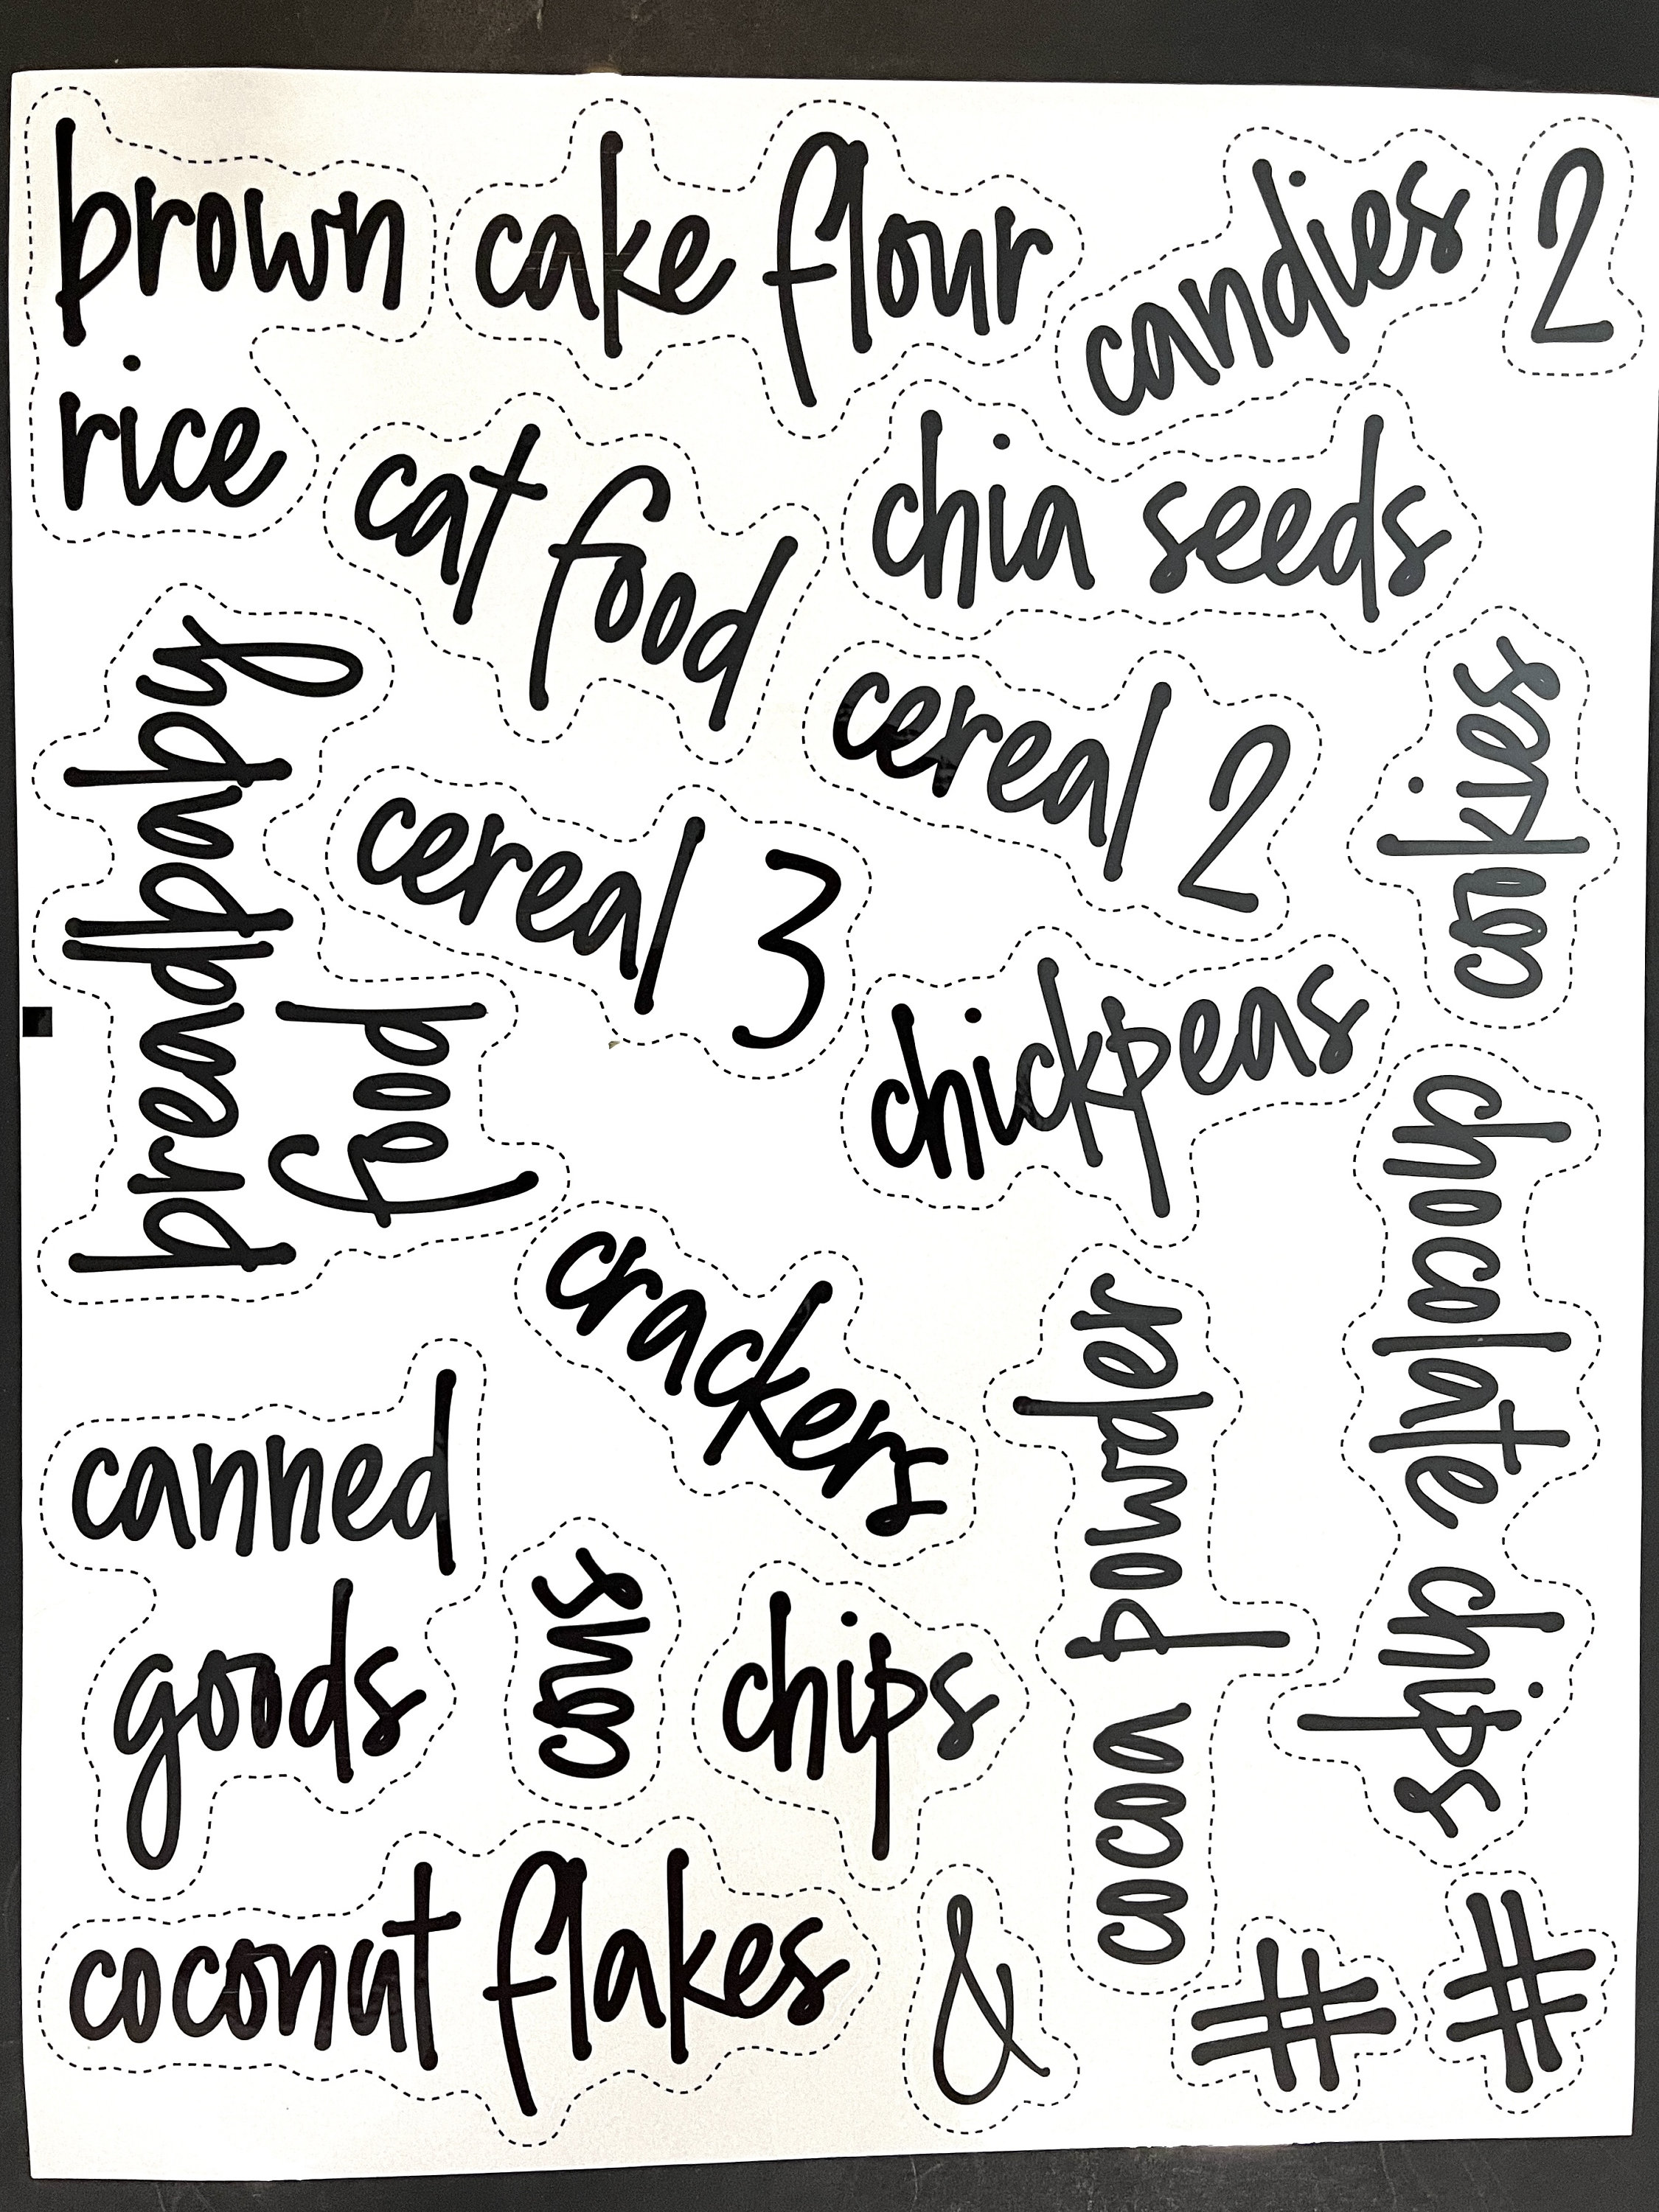 brown
rice
cake flour
candies
2
cat food
chia seeds
bread
baby
food
cereal 2
cookies
cereal 3
chickpeas
chocolate chips
crackers
cocoa powder
canned
goods
cons
chips
coconut flakes
&
#
#